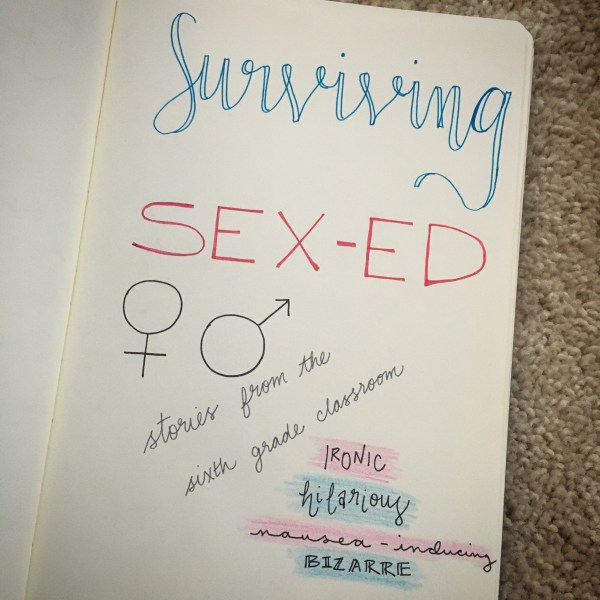 Surviving
SEX-ED
stories from the
sixth grade classroom
IRONIC
hilarious
nausea-inducing
BIZARRE